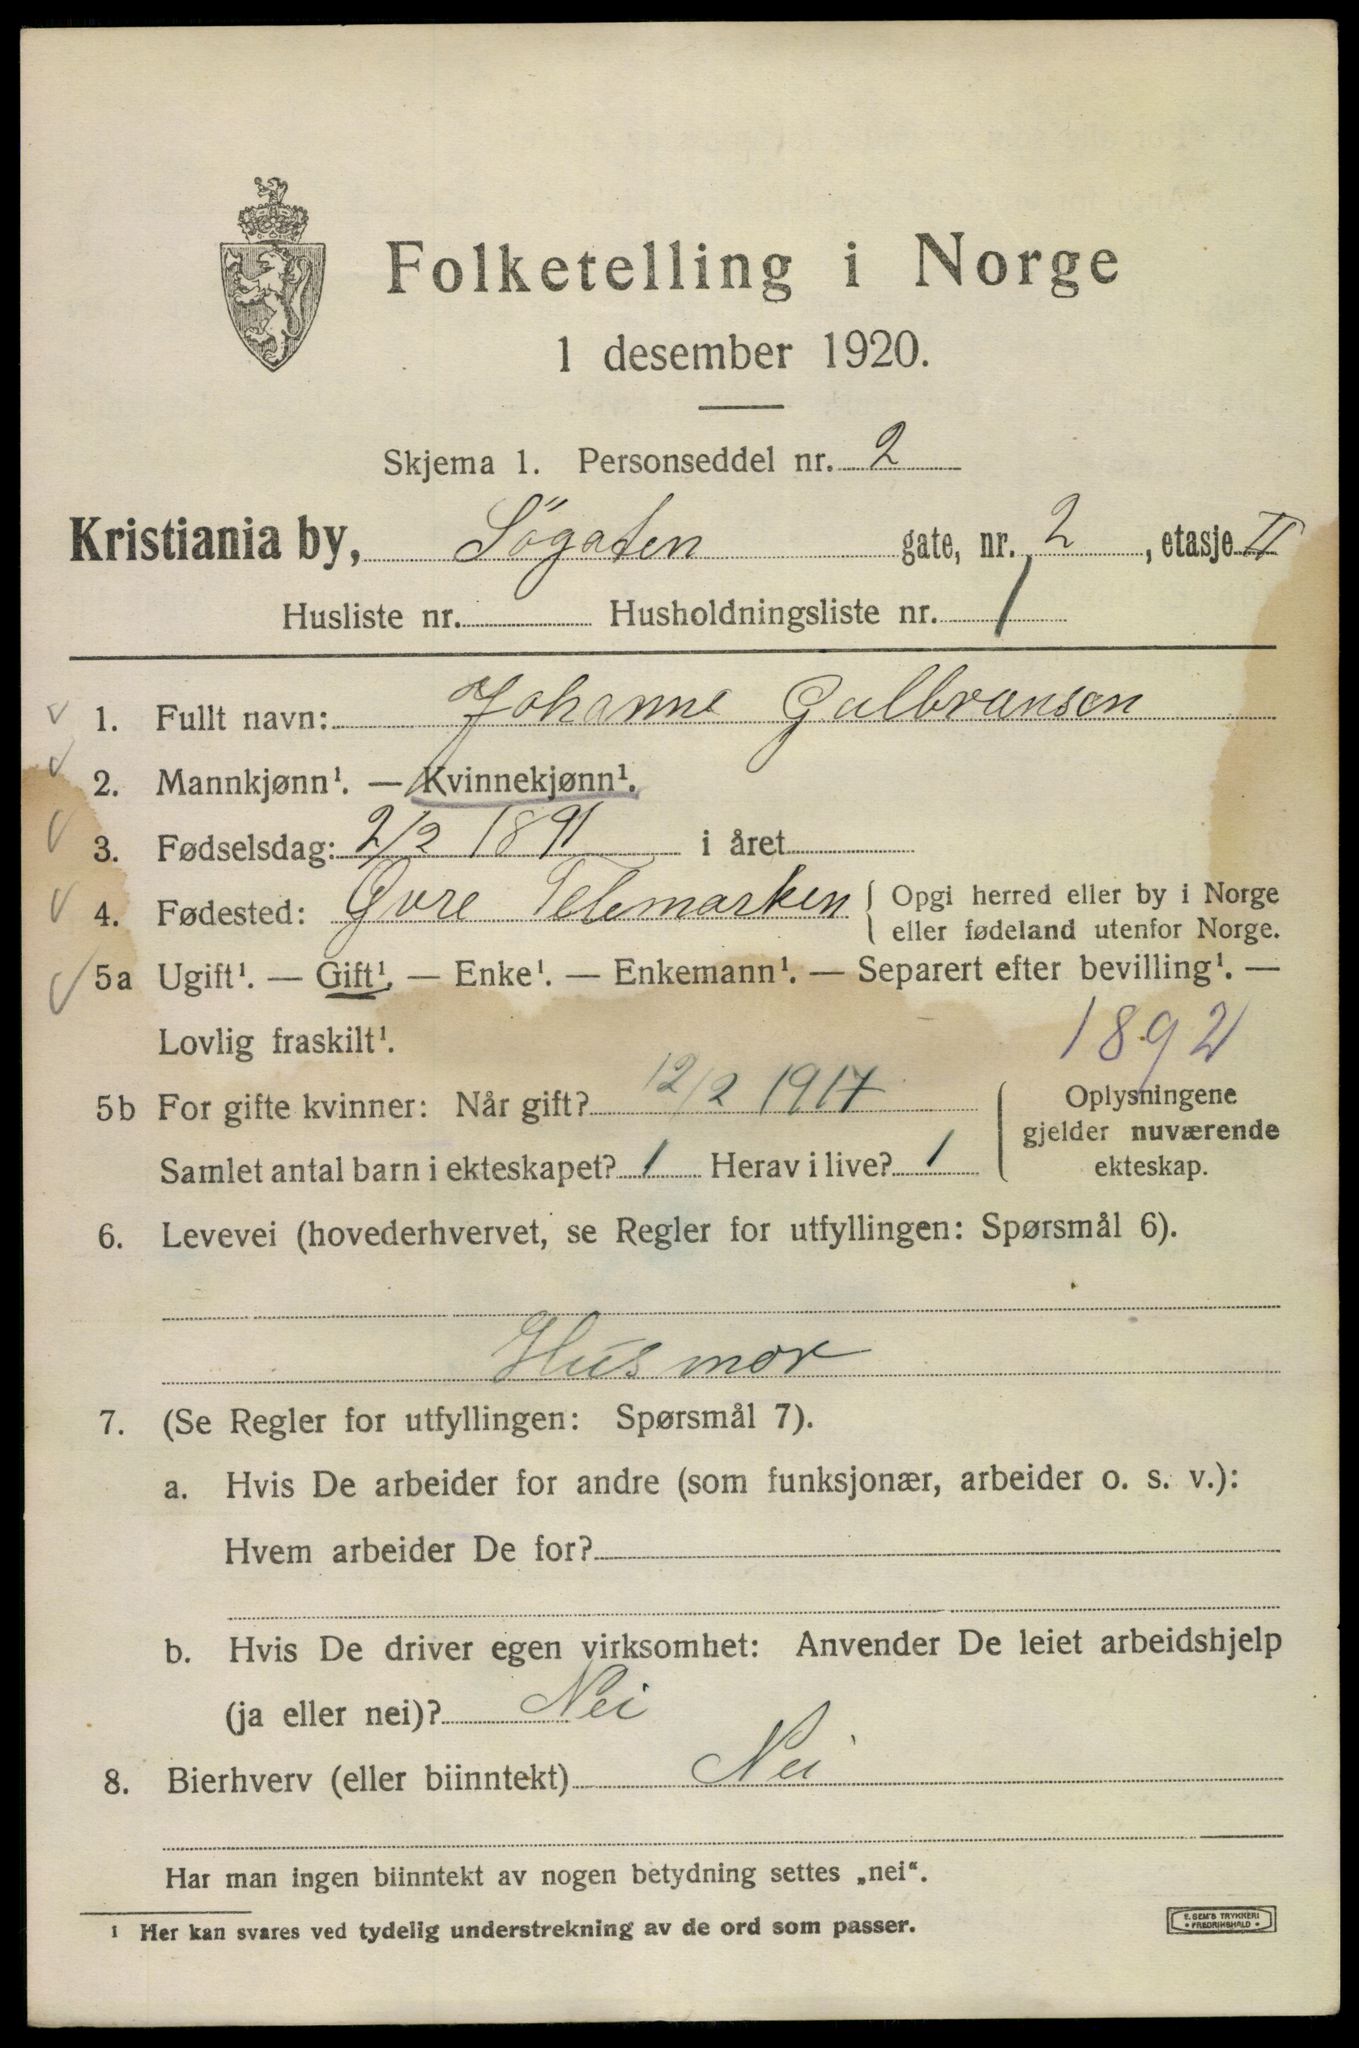 Folketelling i Norge
1 desember 1920.
Skjema 1. Personseddel nr. 2
Kristiania by, Søgaten gate, nr. 2, etasje II
Husliste nr. Husholdningsliste nr. 1
1. Fullt navn: Johanne Gulbransen
2. Mannkjønn¹. — Kvinnekjønn¹.
3. Fødselsdag: 2/2 1891 i året
4. Fødested: Øvre Telemarken { Opgi herred eller by i Norge
eller fødeland utenfor Norge.
5a Ugift¹. — Gift¹. — Enke¹. — Enkemann¹. — Separert efter bevilling¹. —
Lovlig fraskilt¹. 1892
5b For gifte kvinner: Når gift? 12/2 1917 { Oplysningene
gjelder nuværende
Samlet antal barn i ekteskapet? 1 Herav i live? 1 ekteskap.
6. Levevei (hovederhvervet, se Regler for utfyllingen: Spørsmål 6).
Husmor
7. (Se Regler for utfyllingen: Spørsmål 7).
a. Hvis De arbeider for andre (som funksjonær, arbeider o. s. v.):
Hvem arbeider De for?
b. Hvis De driver egen virksomhet: Anvender De leiet arbeidshjelp
(ja eller nei)? Nei
8. Bierhverv (eller biinntekt) Nei
Har man ingen biinntekt av nogen betydning settes „nei“.
¹ Her kan svares ved tydelig understrekning av de ord som passer.
E. SEM'S TRYKKERI
• FREDRIKSHALD •